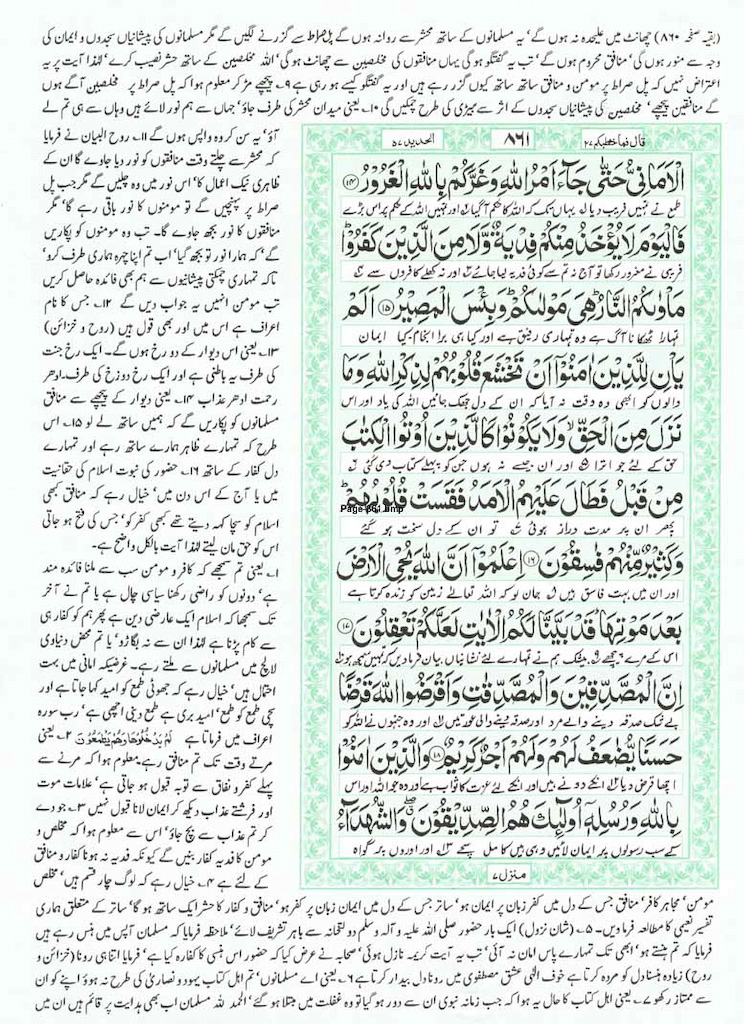 (بقیہ صفحہ ۸۶۰) چھانٹ میں علیحدہ نہ ہوں گے' یہ مسلمانوں کے ساتھ محشر سے روانہ ہوں گے پل صراط سے گزرنے لگیں گے مگر مسلمانوں کی پیشانیاں سجدوں و ایمان کی
وجہ سے منور ہوں گی' منافق محروم ہوں گے' تب یہ گفتگو ہوگی یہاں منافقوں کی مخلصین سے چھانٹ ہوگی' اللہ مخلصین کے ساتھ حشر نصیب کرے' لہٰذا آیت پر یہ
اعتراض نہیں کہ پل صراط پر مومن و منافق ساتھ ساتھ کیوں گزر رہے ہیں اور یہ گفتگو کیسے ہو رہی ہے ۹۔ پیچھے مڑ کر معلوم ہوا کہ پل صراط پر مخلصین آگے ہوں
گے منافقین پیچھے' مخلصین کی پیشانیاں سجدوں کے اثر سے بیٹری کی طرح چمکیں گی ۱۰۔ یعنی میدان محشر کی طرف جاؤ' جہاں سے ہم نور لائے ہیں وہاں سے ہی تم لے
آؤ' یہ سن کر وہ واپس ہوں گے ۱۱۔ روح البیان نے فرمایا
کہ محشر سے چلتے وقت منافقوں کو نور دیا جاوے گا ان کے
ظاہری نیک اعمال کا' اس نور میں وہ چلیں گے مگر جب پل
صراط پر پہنچیں گے تو مومنوں کا نور باقی رہے گا' مگر
منافقوں کا نور بجھ جاوے گا۔ تب وہ مومنوں کو پکاریں
گے' کہ ہمارا نور تو بجھ گیا' اب تم اپنا چہرہ ہماری طرف کرو'
تاکہ تمہاری چمکتی پیشانیوں سے ہم بھی فائدہ حاصل کریں
تب مومن انہیں یہ جواب دیں گے ۱۲۔ جس کا نام
اعراف ہے اس میں اور بھی قول ہیں (روح و خزائن)
۱۳۔ یعنی اس دیوار کے دو رخ ہوں گے۔ ایک رخ جنت
کی طرف یہ باطنی ہے اور ایک رخ دوزخ کی طرف۔ ادھر
رحمت ادھر عذاب ۱۴۔ یعنی دیوار کے پیچھے سے منافق
مسلمانوں کو پکاریں گے کہ ہمیں ساتھ لے لو ۱۵۔ اس
طرح کہ تمہارے ظاہر ہمارے ساتھ رہے اور تمہارے
دل کفار کے ساتھ ۱۶۔ حضور کی نبوت اسلام کی حقانیت
میں یا آج کے اس دن میں' خیال رہے کہ منافق کبھی
اسلام کو سچا کہہ دیتے تھے کبھی کفر کو' جس کی فتح ہو جاتی
اس کو حق مان لیتے لہٰذا آیت بالکل واضح ہے۔
۱۔ یعنی تم سمجھے کہ کافر و مومن سب سے ملنا فائدہ مند
ہے' دونوں کو راضی رکھنا سیاسی چال ہے یا تم نے آخر
تک سمجھا کہ اسلام ایک عارضی دین ہے پھر ہم کو کفار ہی
سے کام پڑنا ہے لہٰذا ان سے نہ بگاڑو' یا تم محض دنیاوی
لالچ میں مسلمانوں سے ملتے رہے۔ غرضیکہ امانی میں بہت
احتمال ہیں' خیال رہے کہ جھوٹی طمع کو امید کہا جاتا ہے اور
سچی طمع کو طمع' امید بری ہے طمع دینی اچھی ہے' رب سورہ
اعراف میں فرماتا ہے لَمْ يَدْخُلُوْهَا وَهُمْ يَطْمَعُوْنَ ۲۔ یعنی
مرتے وقت تک تم منافق رہے، معلوم ہوا کہ مرنے سے
پہلے کفر و نفاق سے توبہ قبول ہو جاتی ہے' علامات موت
اور فرشتے عذاب دیکھ کر ایمان لانا قبول نہیں ۳۔ جو دے
کر تم عذاب سے بچ جاؤ' اس سے معلوم ہوا کہ مخلص و
مومن کا فدیہ کفار بنیں گے کیونکہ فدیہ نہ ہونا کفار و منافق
کے لئے ہے ۴۔ خیال رہے کہ لوگ چار قسم ہیں' مخلص
قال فما خطبکم ۲۷
۸۶۱
الحدید ۵۷
الْاَمَانِیُّ حَتّٰی جَآءَ اَمْرُ اللّٰهِ وَغَرَّكُمْ بِاللّٰهِ الْغَرُوْرُ ۱۴
طمع نے تمہیں فریب دیا ۱ یہاں تک کہ اللہ کا حکم آگیا ۲ اور تمہیں اللہ کے حکم پر اس بڑے
فَالْیَوْمَ لَا یُؤْخَذُ مِنْكُمْ فِدْیَةٌ وَّلَا مِنَ الَّذِیْنَ كَفَرُوْا
فریبی نے مغرور رکھا تو آج نہ تم سے کوئی فدیہ لیا جائے ۳ اور نہ کھلے کافروں سے ۴
مَاْوٰىكُمُ النَّارُ هِیَ مَوْلٰىكُمْ وَبِئْسَ الْمَصِیْرُ ۱۵ اَلَمْ
تمہارا ٹھکانا آگ ہے وہ تمہاری رفیق ہے اور کیا ہی برا انجام کیا ایمان
یَاْنِ لِلَّذِیْنَ اٰمَنُوْۤا اَنْ تَخْشَعَ قُلُوْبُهُمْ لِذِكْرِ اللّٰهِ وَمَا
والوں کو ابھی وہ وقت نہ آیا کہ ان کے دل جھک جائیں اللہ کی یاد اور اس
نَزَلَ مِنَ الْحَقِّ وَلَا یَكُوْنُوْا كَالَّذِیْنَ اُوْتُوا الْكِتٰبَ
حق کے لئے جو اترا ۵ اور ان جیسے نہ ہوں جن کو پہلے کتاب دی گئی ۶
مِنْ قَبْلُ فَطَالَ عَلَیْهِمُ الْاَمَدُ فَقَسَتْ قُلُوْبُهُمْ
Page 861.bmp
پھر ان پر مدت دراز ہوئی ۷ تو ان کے دل سخت ہو گئے
وَكَثِیْرٌ مِّنْهُمْ فٰسِقُوْنَ ۱۶ اِعْلَمُوْۤا اَنَّ اللّٰهَ یُحْیِ الْاَرْضَ
اور ان میں بہت فاسق ہیں ۸ جان لو کہ اللہ تعالیٰ زمین کو زندہ کرتا ہے
بَعْدَ مَوْتِهَا قَدْ بَیَّنَّا لَكُمُ الْاٰیٰتِ لَعَلَّكُمْ تَعْقِلُوْنَ ۱۷
اس کے مرے پیچھے ۹ بیشک ہم نے تمہارے لئے نشانیاں بیان فرما دیں کہ تمہیں سمجھ ہو ۱۰
اِنَّ الْمُصَّدِّقِیْنَ وَالْمُصَّدِّقٰتِ وَاَقْرَضُوا اللّٰهَ قَرْضًا
بے شک صدقہ دینے والے مرد اور صدقہ دینے والی عورتیں ۱۱ اور وہ جنہوں نے اللہ کو
حَسَنًا یُّضٰعَفُ لَهُمْ وَلَهُمْ اَجْرٌ كَرِیْمٌ ۱۸ وَالَّذِیْنَ اٰمَنُوْا
اچھا قرض دیا ۱۲ انکے دونے ہیں اور انکے لئے عزت کا ثواب ہے اور وہ جو اللہ اور اس
بِاللّٰهِ وَرُسُلِهٖۤ اُولٰٓىِٕكَ هُمُ الصِّدِّیْقُوْنَ وَالشُّهَدَآءُ
کے سب رسولوں پر ایمان لائیں وہی ہیں کامل سچے ۱۳ اور اوروں پر گواہ
منزل ۷
مومن' مجاہر کافر' منافق جس کے دل میں کفر زبان پر ایمان ہو' ساتر جس کے دل میں ایمان زبان پر کفر ہو' منافق و کفار کا حشر ایک ساتھ ہو گا' ساتر کے متعلق ہماری
تفسیر نعیمی کا مطالعہ فرماویں۔ ۵۔ (شان نزول) ایک بار حضور صلی اللہ علیہ و آلہ وسلم دولتخانہ سے باہر تشریف لائے' ملاحظہ فرمایا کہ مسلمان آپس میں ہنس رہے ہیں
فرمایا کہ تم ہنستے ہو' ابھی تک تمہارے پاس امان نہ آئی' تب یہ آیت کریمہ نازل ہوئی' صحابہ نے عرض کیا کہ حضور اس ہنسی کا کفارہ کیا ہے' فرمایا اتنا ہی رونا (خزائن و
روح) زیادہ ہنسنا دل کو مردہ کرتا ہے خوف الٰہی عشق مصطفوی میں رونا دل بیدار کرتا ہے ۶۔ یعنی اے مسلمانوں' تم اہل کتاب یہود و نصاریٰ کی طرح نہ ہوؤ اپنے کو ان
سے ممتاز رکھو ۷۔ یعنی اہل کتاب کا حال یہ ہوا کہ جب زمانہ نبوی ان سے دور ہو گیا تو وہ غفلت میں مبتلا ہو گئے' الحمد للہ مسلمان اب بھی ہدایت پر قائم ہیں ان میں